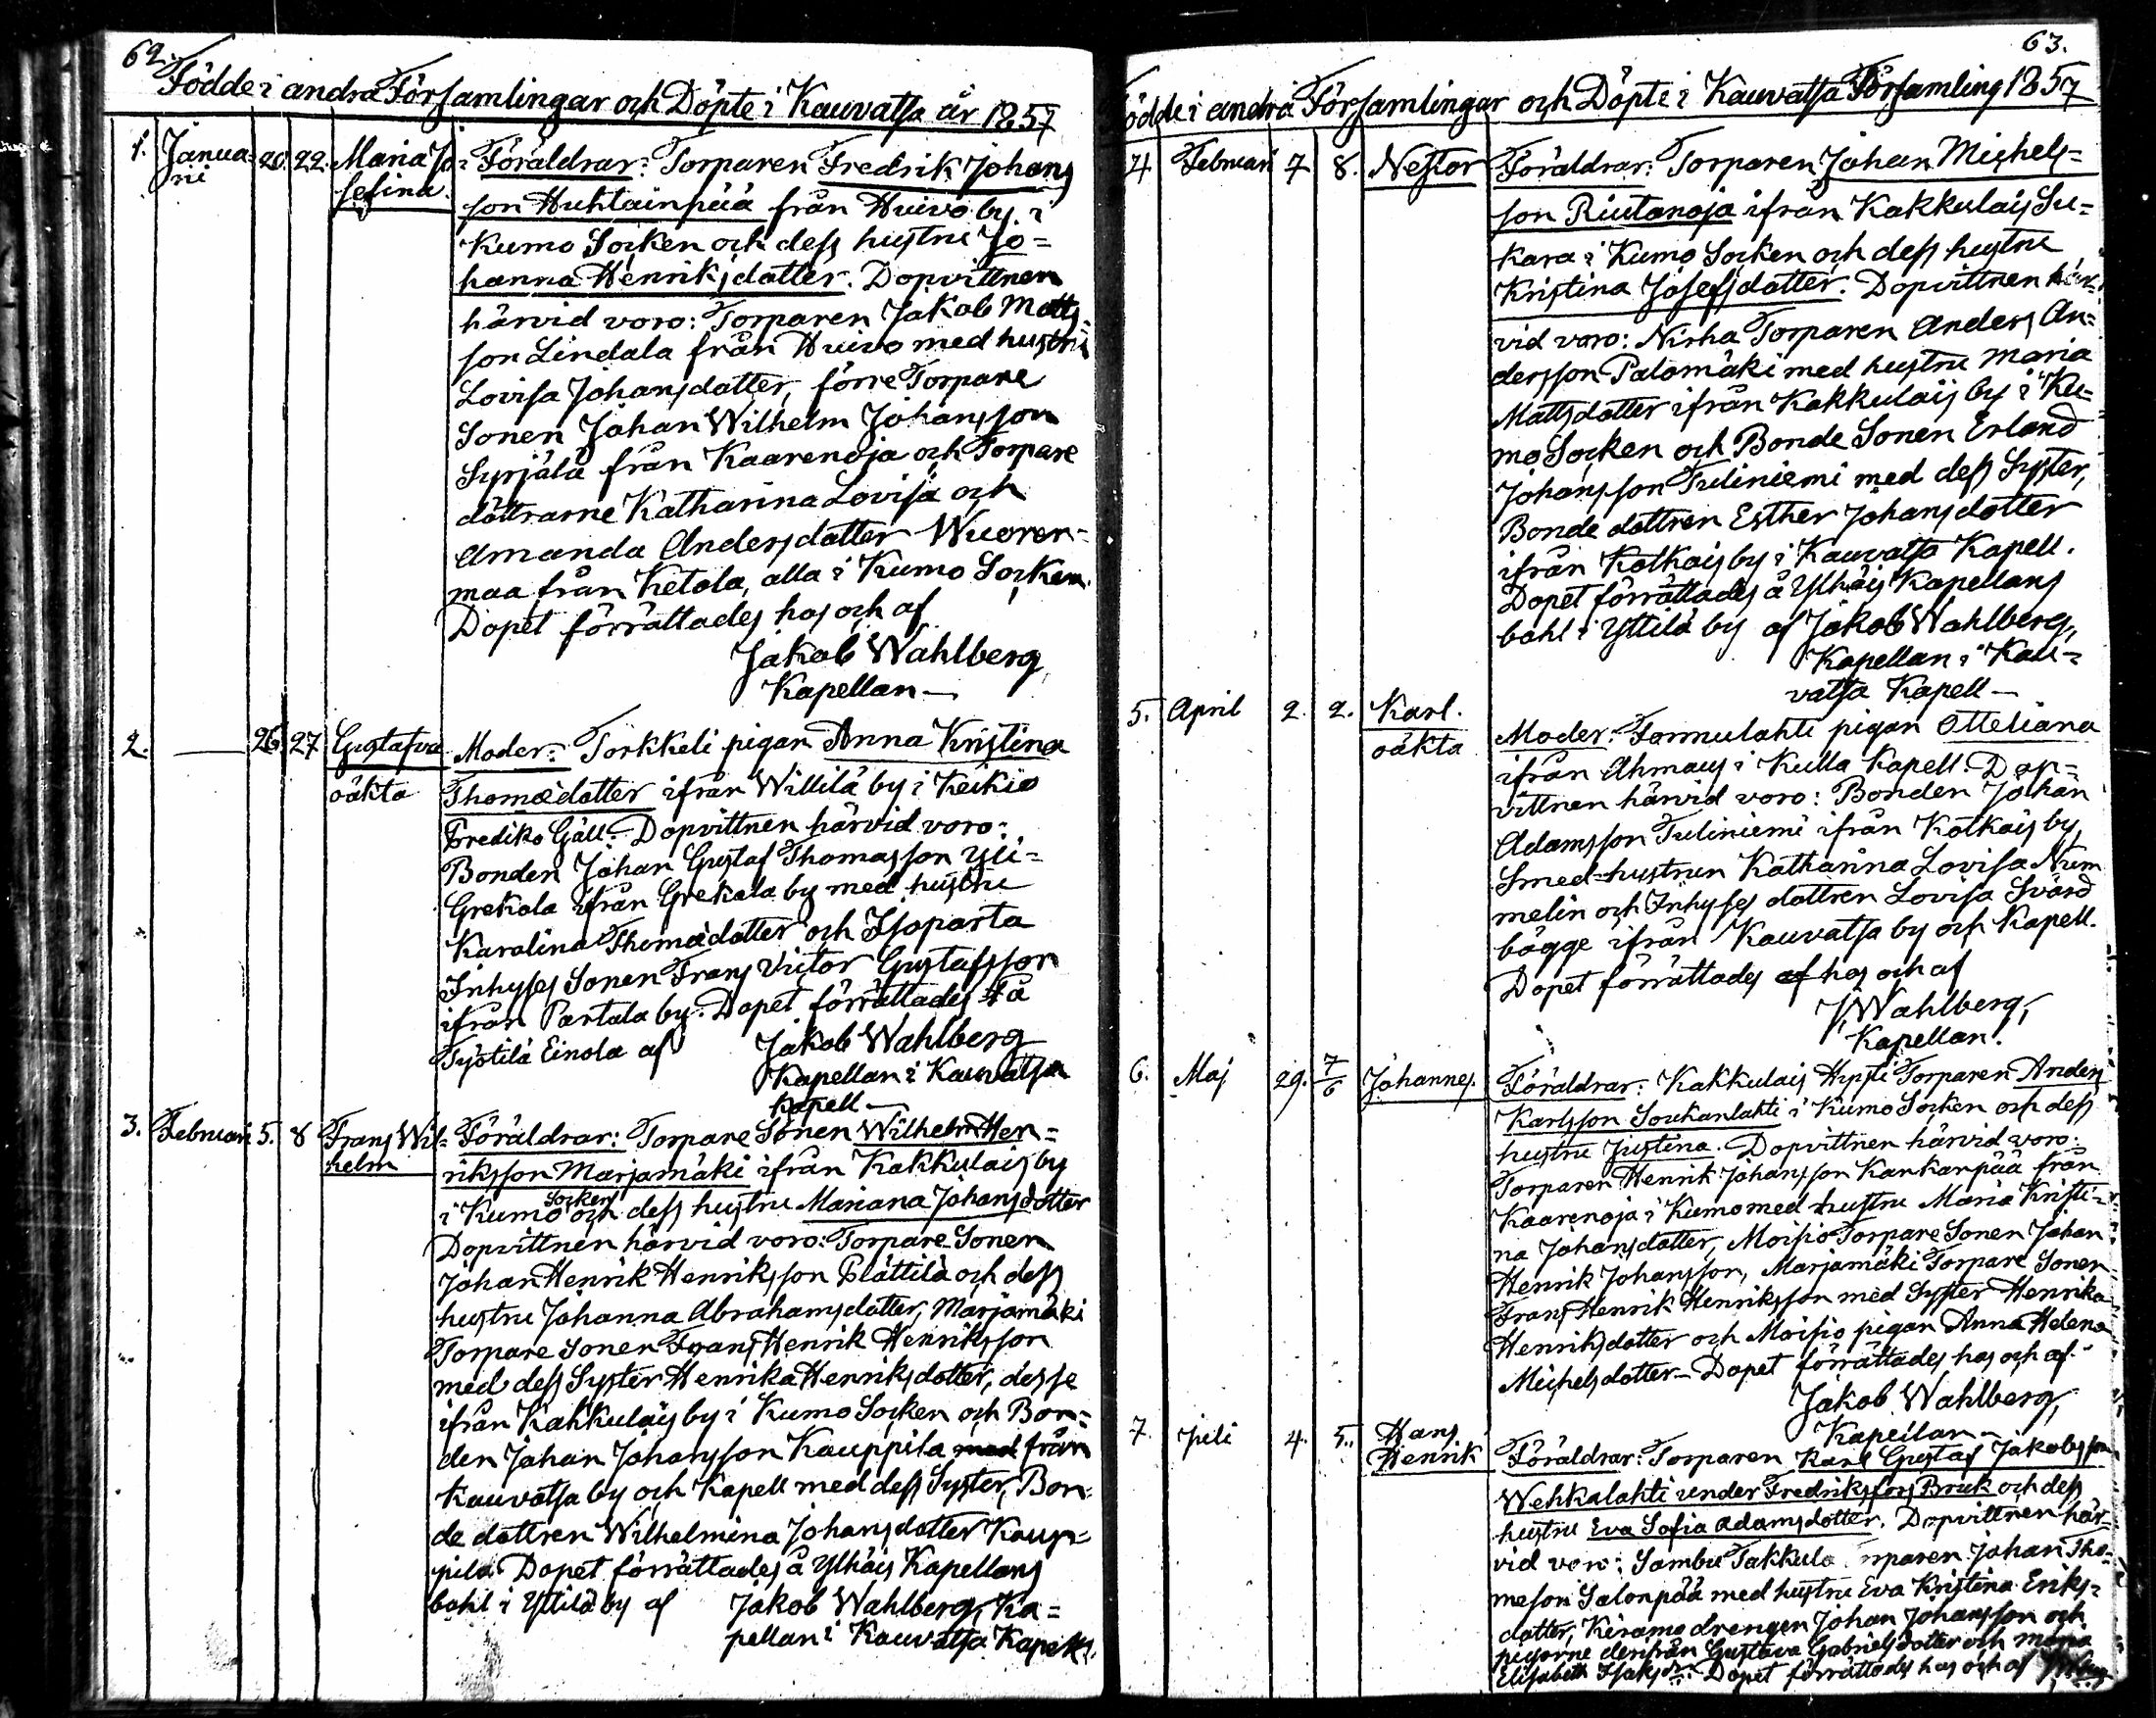 62.
Födde i andra Församlingar och Döpte i Kauvatsa år 1857
1. Janua- 20. 22. Maria Jo- Föräldrar: Torparen Fredrik Johans
ri sefina. son Huhtainpää från Huivo by i
Kumo Socken och dess hustru Jo=
hanna Henriksdotter. Dopvittnen
härvid voro: Torparen Jakob Matts=
son Lindala från Huivo med hustru
Lovisa Johansdotter, förre Torpare
Sonen Johan Wilhelm Johansson
Syrjälä från Kaarenoja och Torpare
döttrarne Katharina Lovisa och
Amanda Andersdotter Wuoren=
maa från Ketola, alla i Kumo Socken.
Dopet förrättades hos och af
Jakob Wahlberg,
Kapellan—
2. — 26. 27 Gustafva Moder: Torkkeli pigan Anna Kristina
oäkta Thomædotter ifrån Willilä by i Keikiö
Prediko Gäll. Dopvittnen härvid voro:
Bonden Johan Gustaf Thomasson Yli=
Grekola ifrån Grekola by med hustru
Karolina Thomædotter och Isoparta
Inhyses Sonen Frans Victor Gustafsson
ifrån Partala by. Dopet förrättades å
Työtilä Einola af Jakob Wahlberg
Kapellan i Kauvatsa
Kapell—
3. Februari 5. 8 Frans Wil= Föräldrar: Torpare Sonen Wilhelm Hen=
helm riksson Marjamäki ifrån Kakkulais by
i Kumo Socken och dess hustru Mariana Johansdotter
Dopvittnen härvid voro: Torpare Sonen
Johan Henrik Henriksson Plättilä och dess
hustru Johanna Abrahamsdotter, Marjamäki
Torpare Sonen Frans Henrik Henriksson
med dess Syster Henrika Henriksdotter, desse
ifrån Kakkulais by i Kumo Socken och Bon=
den Johan Johansson Kauppila med från
Kauvatsa by och Kapell med dess Syster, Bon=
de dottren Wilhelmina Johansdotter Kaup=
pila. Dopet förrättades å Ylhäis Kapellans
bohl i Yttilä by af Jakob Wahlberg, Ka=
pellan i Kauvatsa Kapell.
63.
Födde i andra Församlingar och Döpte i Kauvatsa Församling 1857
4 Februari 7 8. Nestor Föräldrar: Torparen Johan Michels=
son Riutanoja ifrån Kakkulais Su=
kara i Kumo Socken och dess hustru
Kristina Josefsdotter. Dopvittnen här=
vid voro: Nirha Torparen Anders An=
dersson Palomäki med hustru Maria
Mattsdotter ifrån Kakkulais by i Ku=
mo Socken och Bonde Sonen Erland
Johansson Tuliniemi med dess Syster,
Bonde dottren Esther Johansdotter
ifrån Kolkais by i Kauvatsa Kapell.
Dopet förrättades å Ylhäis Kapellans
bohl i Yttilä by af Jakob Wahlberg,
Kapellan i Kau=
vatsa Kapell—
5. April 2. 2. Karl. Moder: Tommulahti pigan Otteliana
oäkta ifrån Ahmaus i Kulla Kapell. Dop=
vittnen härvid voro: Bonden Johan
Adamsson Tuliniemi ifrån Kolkais by,
Smed-hustrun Katharina Lovisa Num
melin och Inhyses dottren Lovisa Svärd
bägge ifrån Kauvatsa by och Kapell.
Dopet förrättades af hos och af
J. Wahlberg,
Kapellan.
6. Maj 29. 7/6 Johannes. Föräldrar: Kakkulais Hipsi Torparen Anders
Karlsson Soukanlahti i Kumo Socken och dess
hustru Justina. Dopvittnen härvid voro:
Torparen Henrik Johansson Kankanpää från
Kaarenoja i Kumo med hustru Maria Kristi=
na Johansdotter, Moisio Torpare Sonen Johan
Henrik Johansson, Marjamäki Torpare Sonen
Frans Henrik Henriksson med Syster Henrika
Henriksdotter och Moisio pigan Anna Helena
Michelsdotter— Dopet förrättades hos och af
Jakob Wahlberg,
Kapellan—
7. Juli 4. 5. Hans Föräldrar: Torparen Karl Gustaf Jakobsson
Henrik Wehkalahti under Fredriksfors Bruk och dess
hustru Eva Sofia Adamsdotter. Dopvittnen här=
vid voro: Sambu Takkula Torparen Johan Tho=
masson Salonpää med hustru Eva Kristina Eriks=
dotter, Kiramo drengen Johan Johansson och
pigorne derifrån Gustava Gabrielsdotter och Maria
Elisabeth Isaksdr. Dopet förrättades hos och af